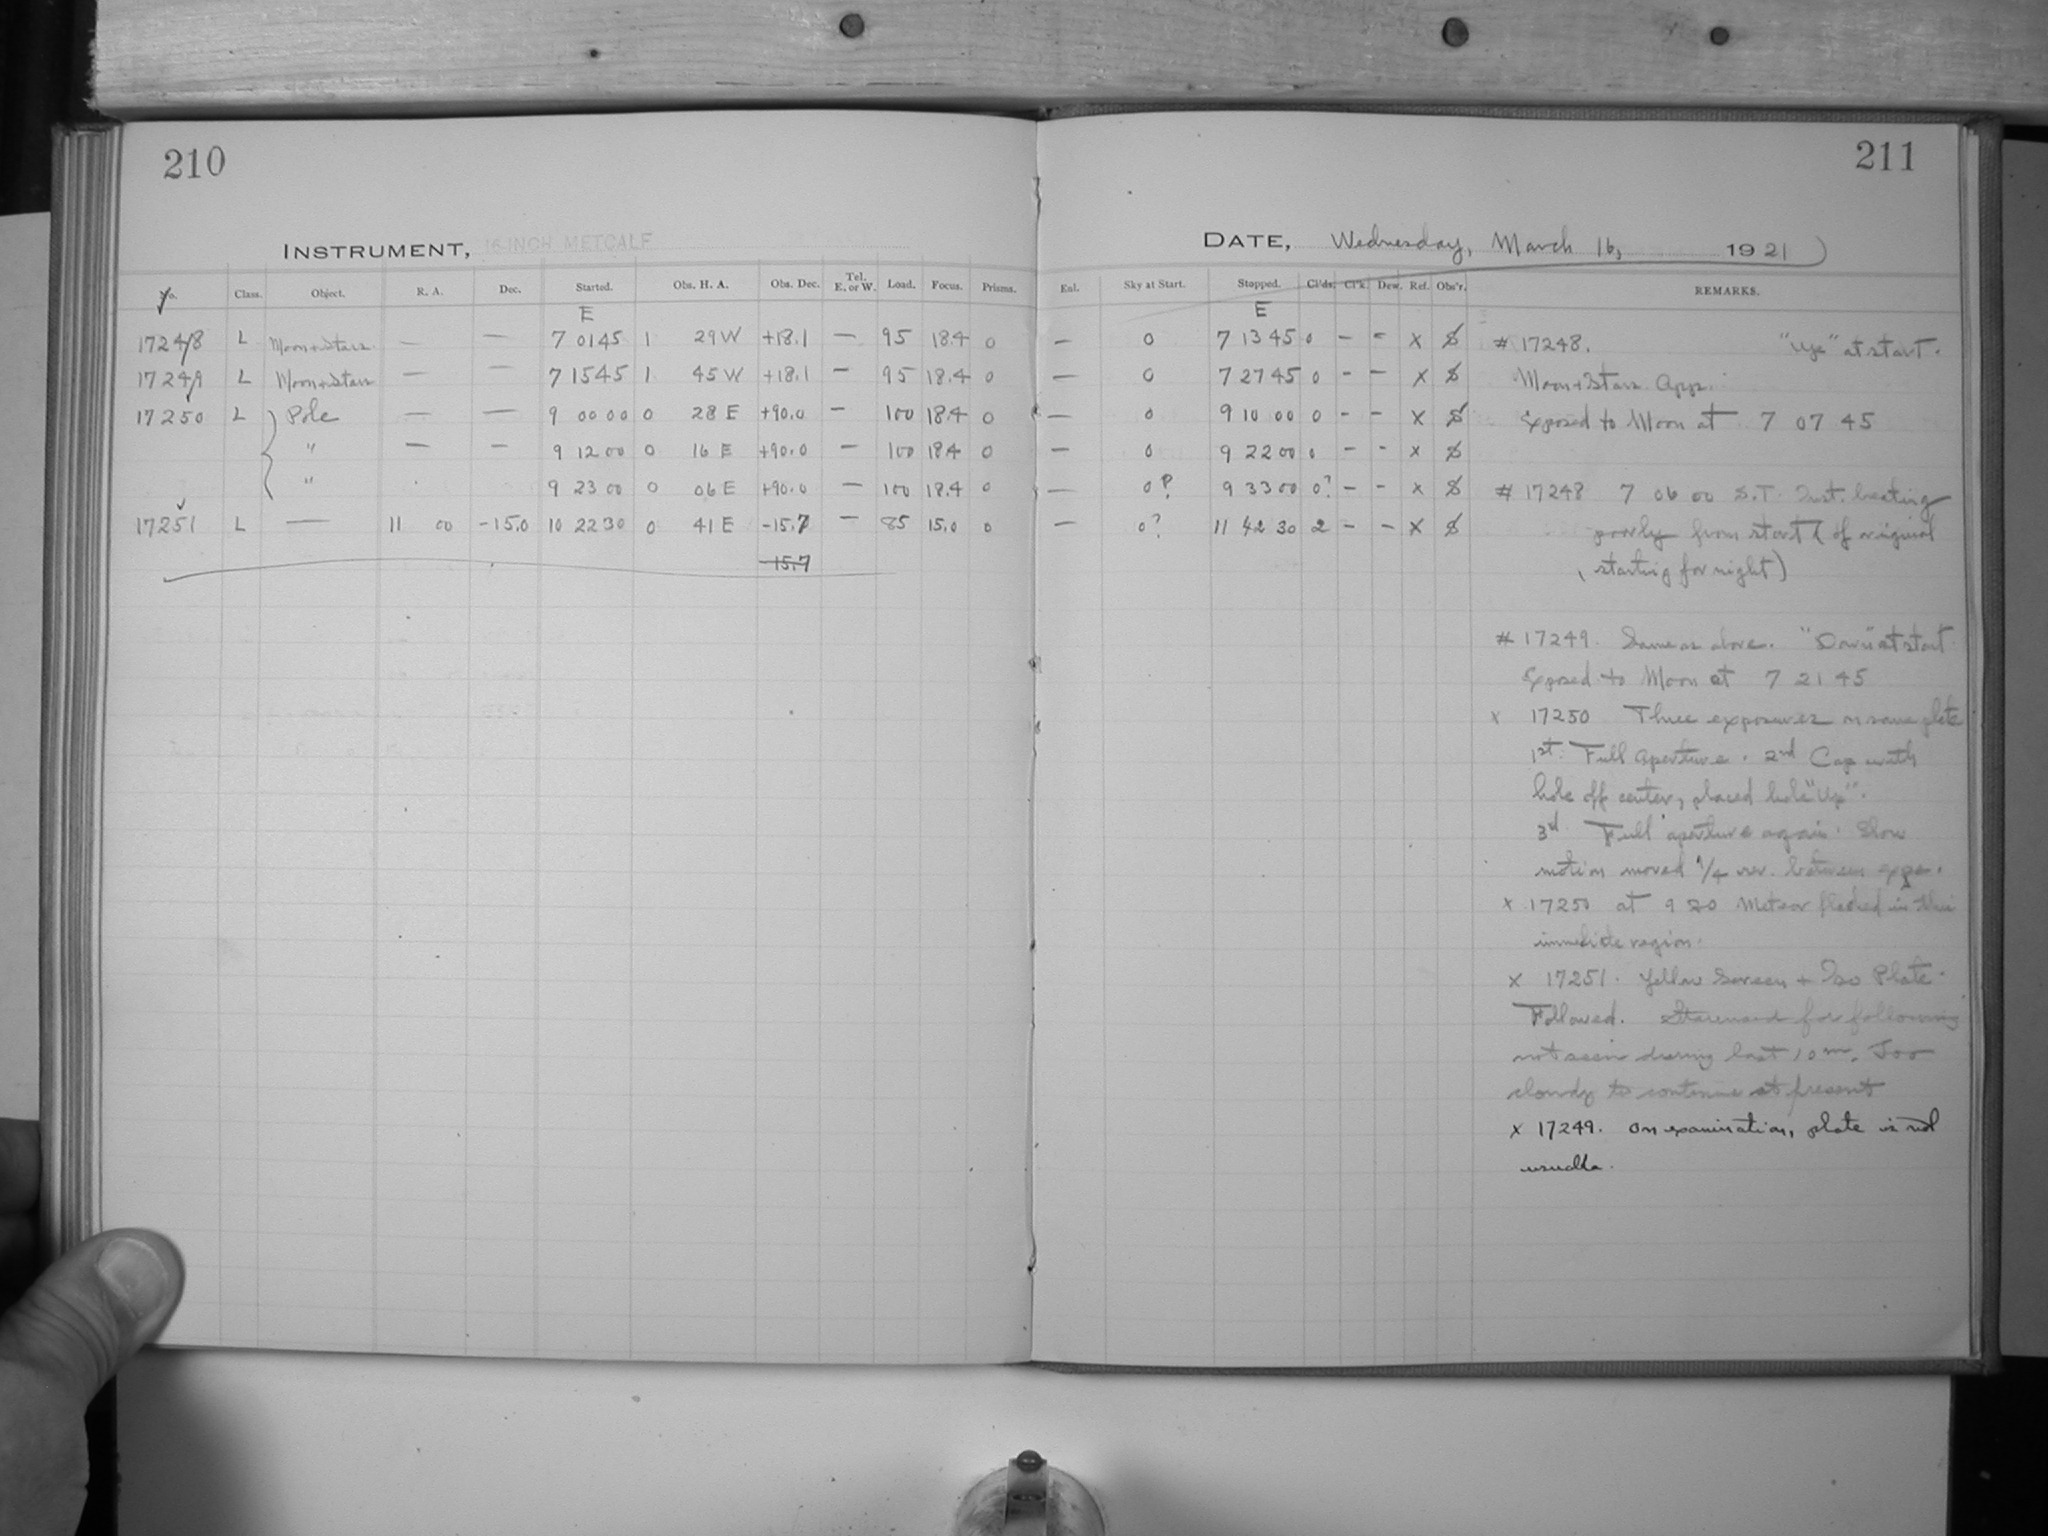 210
INSTRUMENT, 16-INCH METCALF
No. Class. Object. R. A. Dec. Started. Obs. H. A. Obs. Dec. Tel. E. or W. Load. Focus. Prisms.
E
17248 L Moon + Stars — — 7 01 45 1 29 W +18.1 — 95 18.4 0
17249 L Moon + Stars — — 7 15 45 1 45 W +18.1 — 95 18.4 0
17250 L Pole — — 9 00 00 0 28 E +90.0 — 100 18.4 0
" — — 9 12 00 0 16 E +90.0 — 100 18.4 0
" 9 23 00 0 06 E +90.0 — 100 18.4 0
17251 L — 11 00 -15.0 10 22 30 0 41 E -15.7 — 85 15.0 0
-15.7
211
DATE, Wednesday, March 16, 1921
Enl. Sky at Start. Stopped. Cl'ds. Cl'k. Dew. Ref. Obs'r. REMARKS.
E
— 0 7 13 45 0 - - X
— 0 7 27 45 0 - - X
— 0 9 10 00 0 - - X
— 0 9 22 00 0 - - X
— 0? 9 33 00 0? - - X
— 0? 11 42 30 2 - - X
# 17248. "Up" at start.
Moon + Stars App.
Exposed to Moon at 7 07 45
# 17248 7 06 00 S.T. Inst. beating
poorly from start (of original
starting for night)
# 17249. Same as above. "Down" at start
Exposed to Moon at 7 21 45
x 17250 Three exposures on same plate
1st. Full Aperture. 2nd Cap with
hole off center, placed hole "Up".
3d. Full aperture again. Slow
motion moved 1/4 rev. between exps.
x 17250 at 9 20 Meteor flashed in this
immediate region.
x 17251. Yellow Screen + Iso Plate.
Followed. Star used for following
not seen during last 10m. Too
cloudy to continue at present
x 17249. On examination, plate is not
usuable.